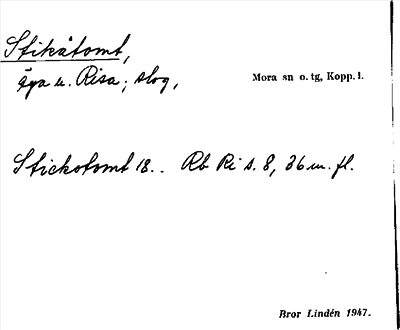 Stikåtomt,
äga u. Risa; slog,
Mora sn o. tg, Kopp. l.
Stickotomt 18.. Rb Ri s. 8, 36 m. fl.
Bror Lindén 1947.